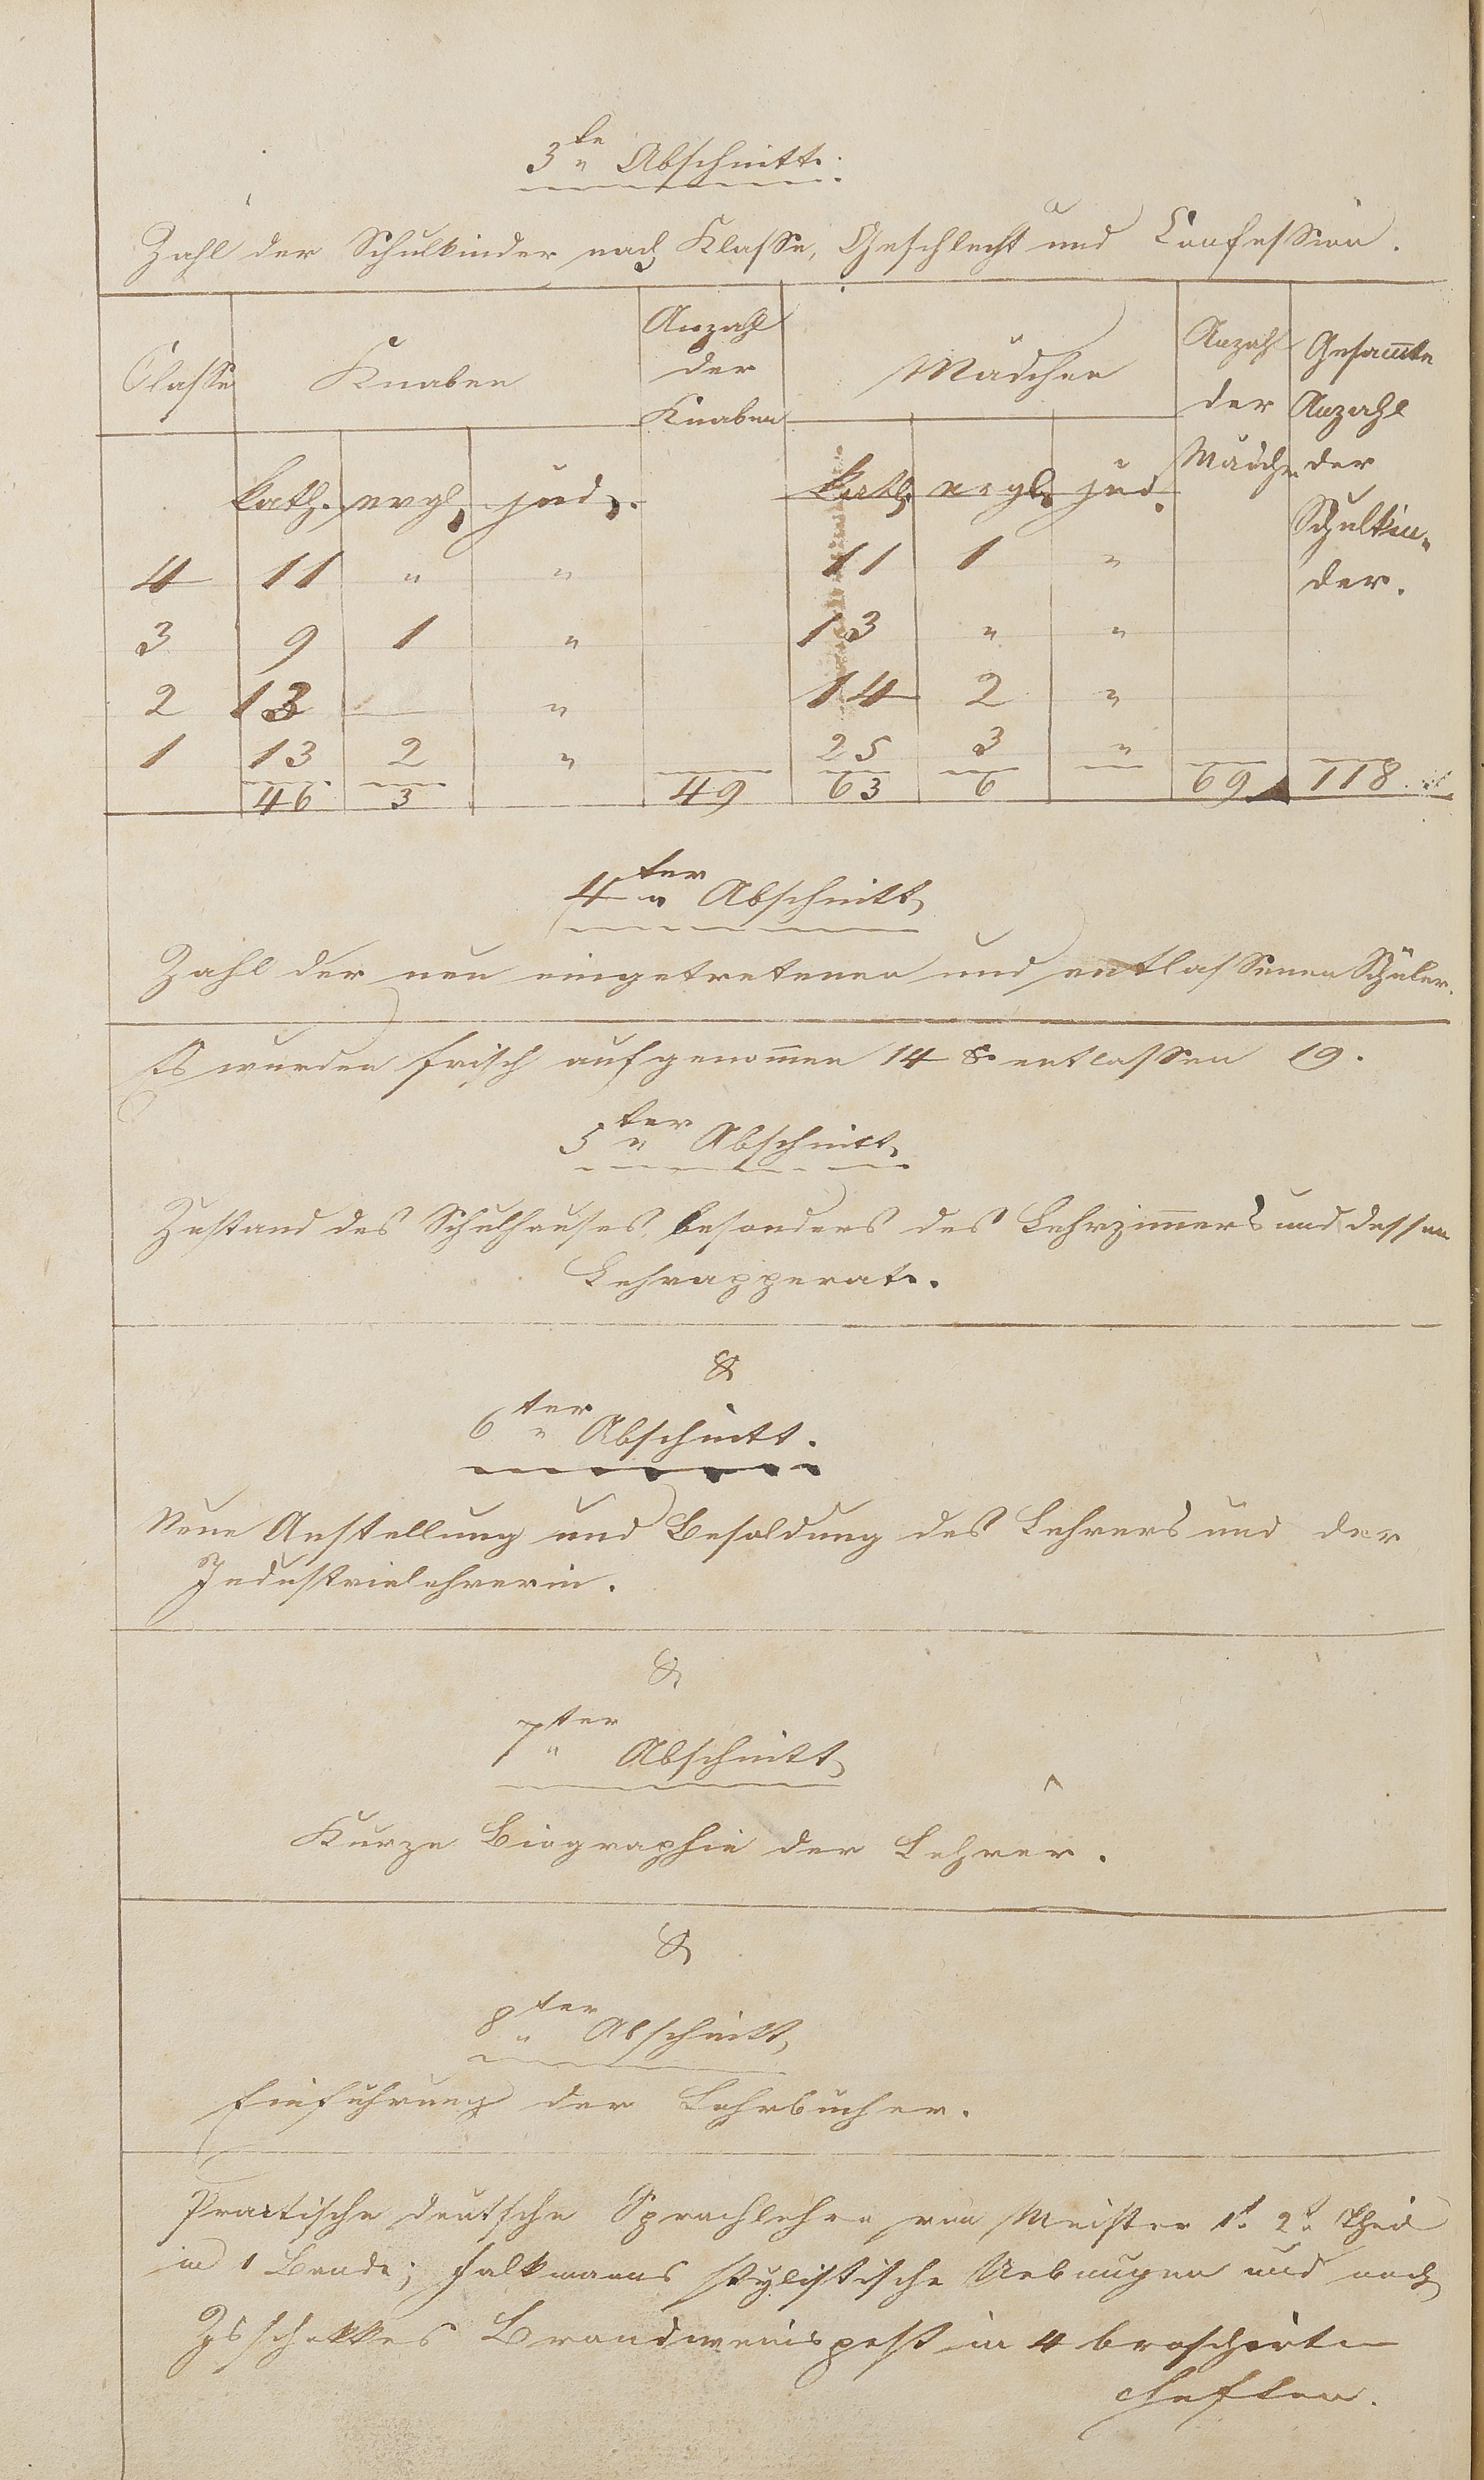 3te " Abschnitt.
Zahl der Schulkinder nach Klasse, Geschlecht und Confession.
Classe Knaben Anzahl der Knaben Mädchen Anzahl der Mädch. Gesam̄te Anzahl der Schulkin„der.
kath. evgl. jud. kath. evgl. jud.
4 11 " " 11 1 "
3 9 1 " 13 " "
2 13 — " 14 2 "
1 13 2 " 25 3 "
46 3 49 63 6 69 118
4ter " Abschnitt
Zahl der neu eingetretenen und entlassenen Schüler.
Es wurden frisch aufgenom̄en 14 & entlassen 19.
5ter " Abschnitt
Zustand des Schulhauses, besonders des Lehrzim̄ers und dessen
Lehrapperate.
&
6ter " Abschnitt.
Neue Anstellung und Besoldung des Lehrers und der
Industrielehrerin.
&
7ter " Abschnitt
Kurze Biographie der Lehrer.
&
8ter " Abschnitt
Einführung der Lehrbücher.
Practische deutsche Sprachlehre von Meister 1t. 2t. Theil
in 1 Bande; Falkmanns stylistische Uebungen und noch
Zschokkes Brandweinspest in 4 broschirten
Heften.